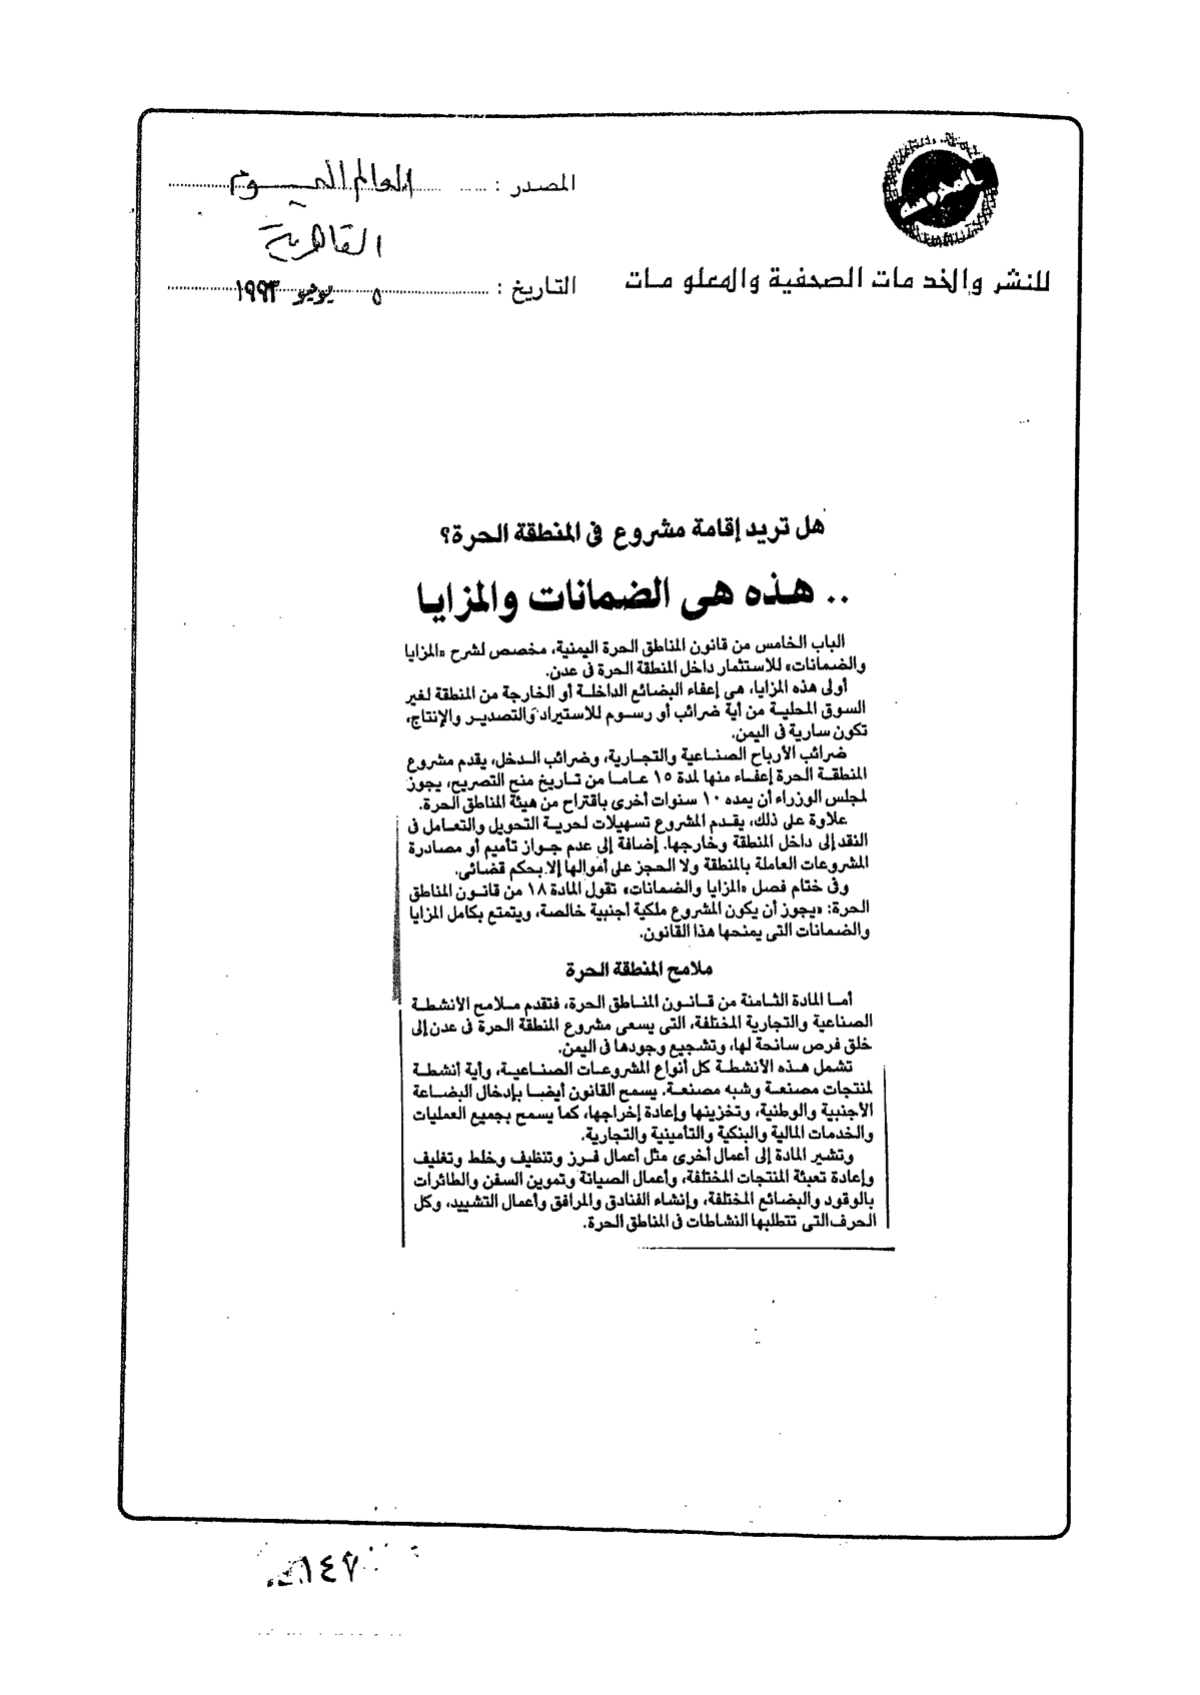 المصدر : العالم اليوم
القاهرية
للنشر والخدمات الصحفية والمعلومات
التاريخ : ٥ يونيو ١٩٩٣
هل تريد إقامة مشروع فى المنطقة الحرة؟
.. هذه هى الضمانات والمزايا
الباب الخامس من قانون المناطق الحرة اليمنية، مخصص لشرح «المزايا
والضمانات» للاستثمار داخل المنطقة الحرة فى عدن.
أولى هذه المزايا، هى إعفاء البضائع الداخلة أو الخارجة من المنطقة لغير
السوق المحلية من أية ضرائب أو رسوم للاستيراد والتصدير والإنتاج،
تكون سارية فى اليمن.
ضرائب الأرباح الصناعية والتجارية، وضرائب الدخل، يقدم مشروع
المنطقة الحرة إعفاء منها لمدة ١٥ عاما من تاريخ منح التصريح، يجوز
لمجلس الوزراء أن يمده ١٠ سنوات أخرى باقتراح من هيئة المناطق الحرة.
علاوة على ذلك، يقدم المشروع تسهيلات لحرية التحويل والتعامل فى
النقد إلى داخل المنطقة وخارجها. إضافة إلى عدم جواز تأميم أو مصادرة
المشروعات العاملة بالمنطقة ولا الحجز على أموالها إلا بحكم قضائى.
وفى ختام فصل «المزايا والضمانات» تقول المادة ١٨ من قانون المناطق
الحرة: «يجوز أن يكون المشروع ملكية أجنبية خالصة، ويتمتع بكامل المزايا
والضمانات التى يمنحها هذا القانون.
ملامح المنطقة الحرة
أما المادة الثامنة من قانون المناطق الحرة، فتقدم ملامح الأنشطة
الصناعية والتجارية المختلفة، التى يسعى مشروع المنطقة الحرة فى عدن إلى
خلق فرص سانحة لها، وتشجيع وجودها فى اليمن.
تشمل هذه الأنشطة كل أنواع المشروعات الصناعية، وأية أنشطة
لمنتجات مصنعة وشبه مصنعة. يسمح القانون أيضا بإدخال البضاعة
الأجنبية والوطنية، وتخزينها وإعادة إخراجها، كما يسمح بجميع العمليات
والخدمات المالية والبنكية والتأمينية والتجارية.
وتشير المادة إلى أعمال أخرى مثل أعمال فرز وتنظيف وخلط وتغليف
وإعادة تعبئة المنتجات المختلفة، وأعمال الصيانة وتموين السفن والطائرات
بالوقود والبضائع المختلفة، وإنشاء الفنادق والمرافق وأعمال التشييد، وكل
الحرف التى تتطلبها النشاطات فى المناطق الحرة.
١٤٧